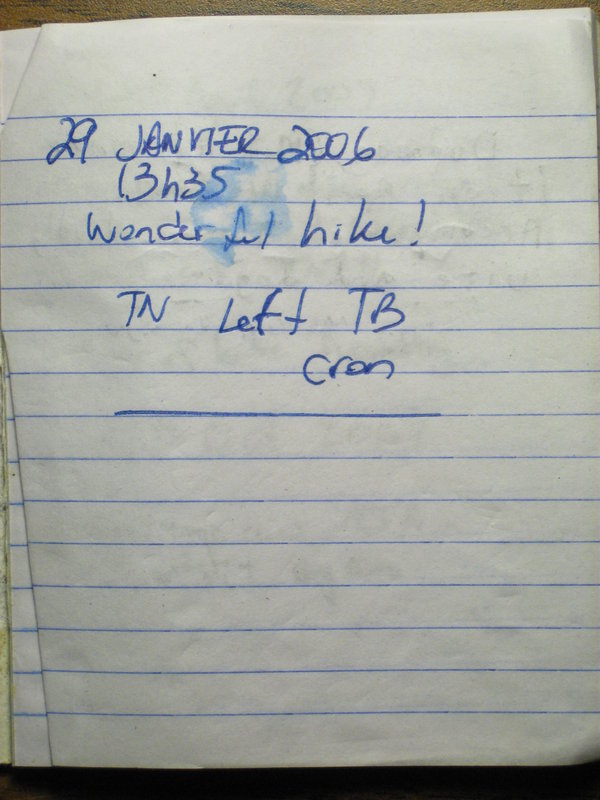 29 JANVIER 2006
13h35
Wonderful hike!
TN Left TB
Cron